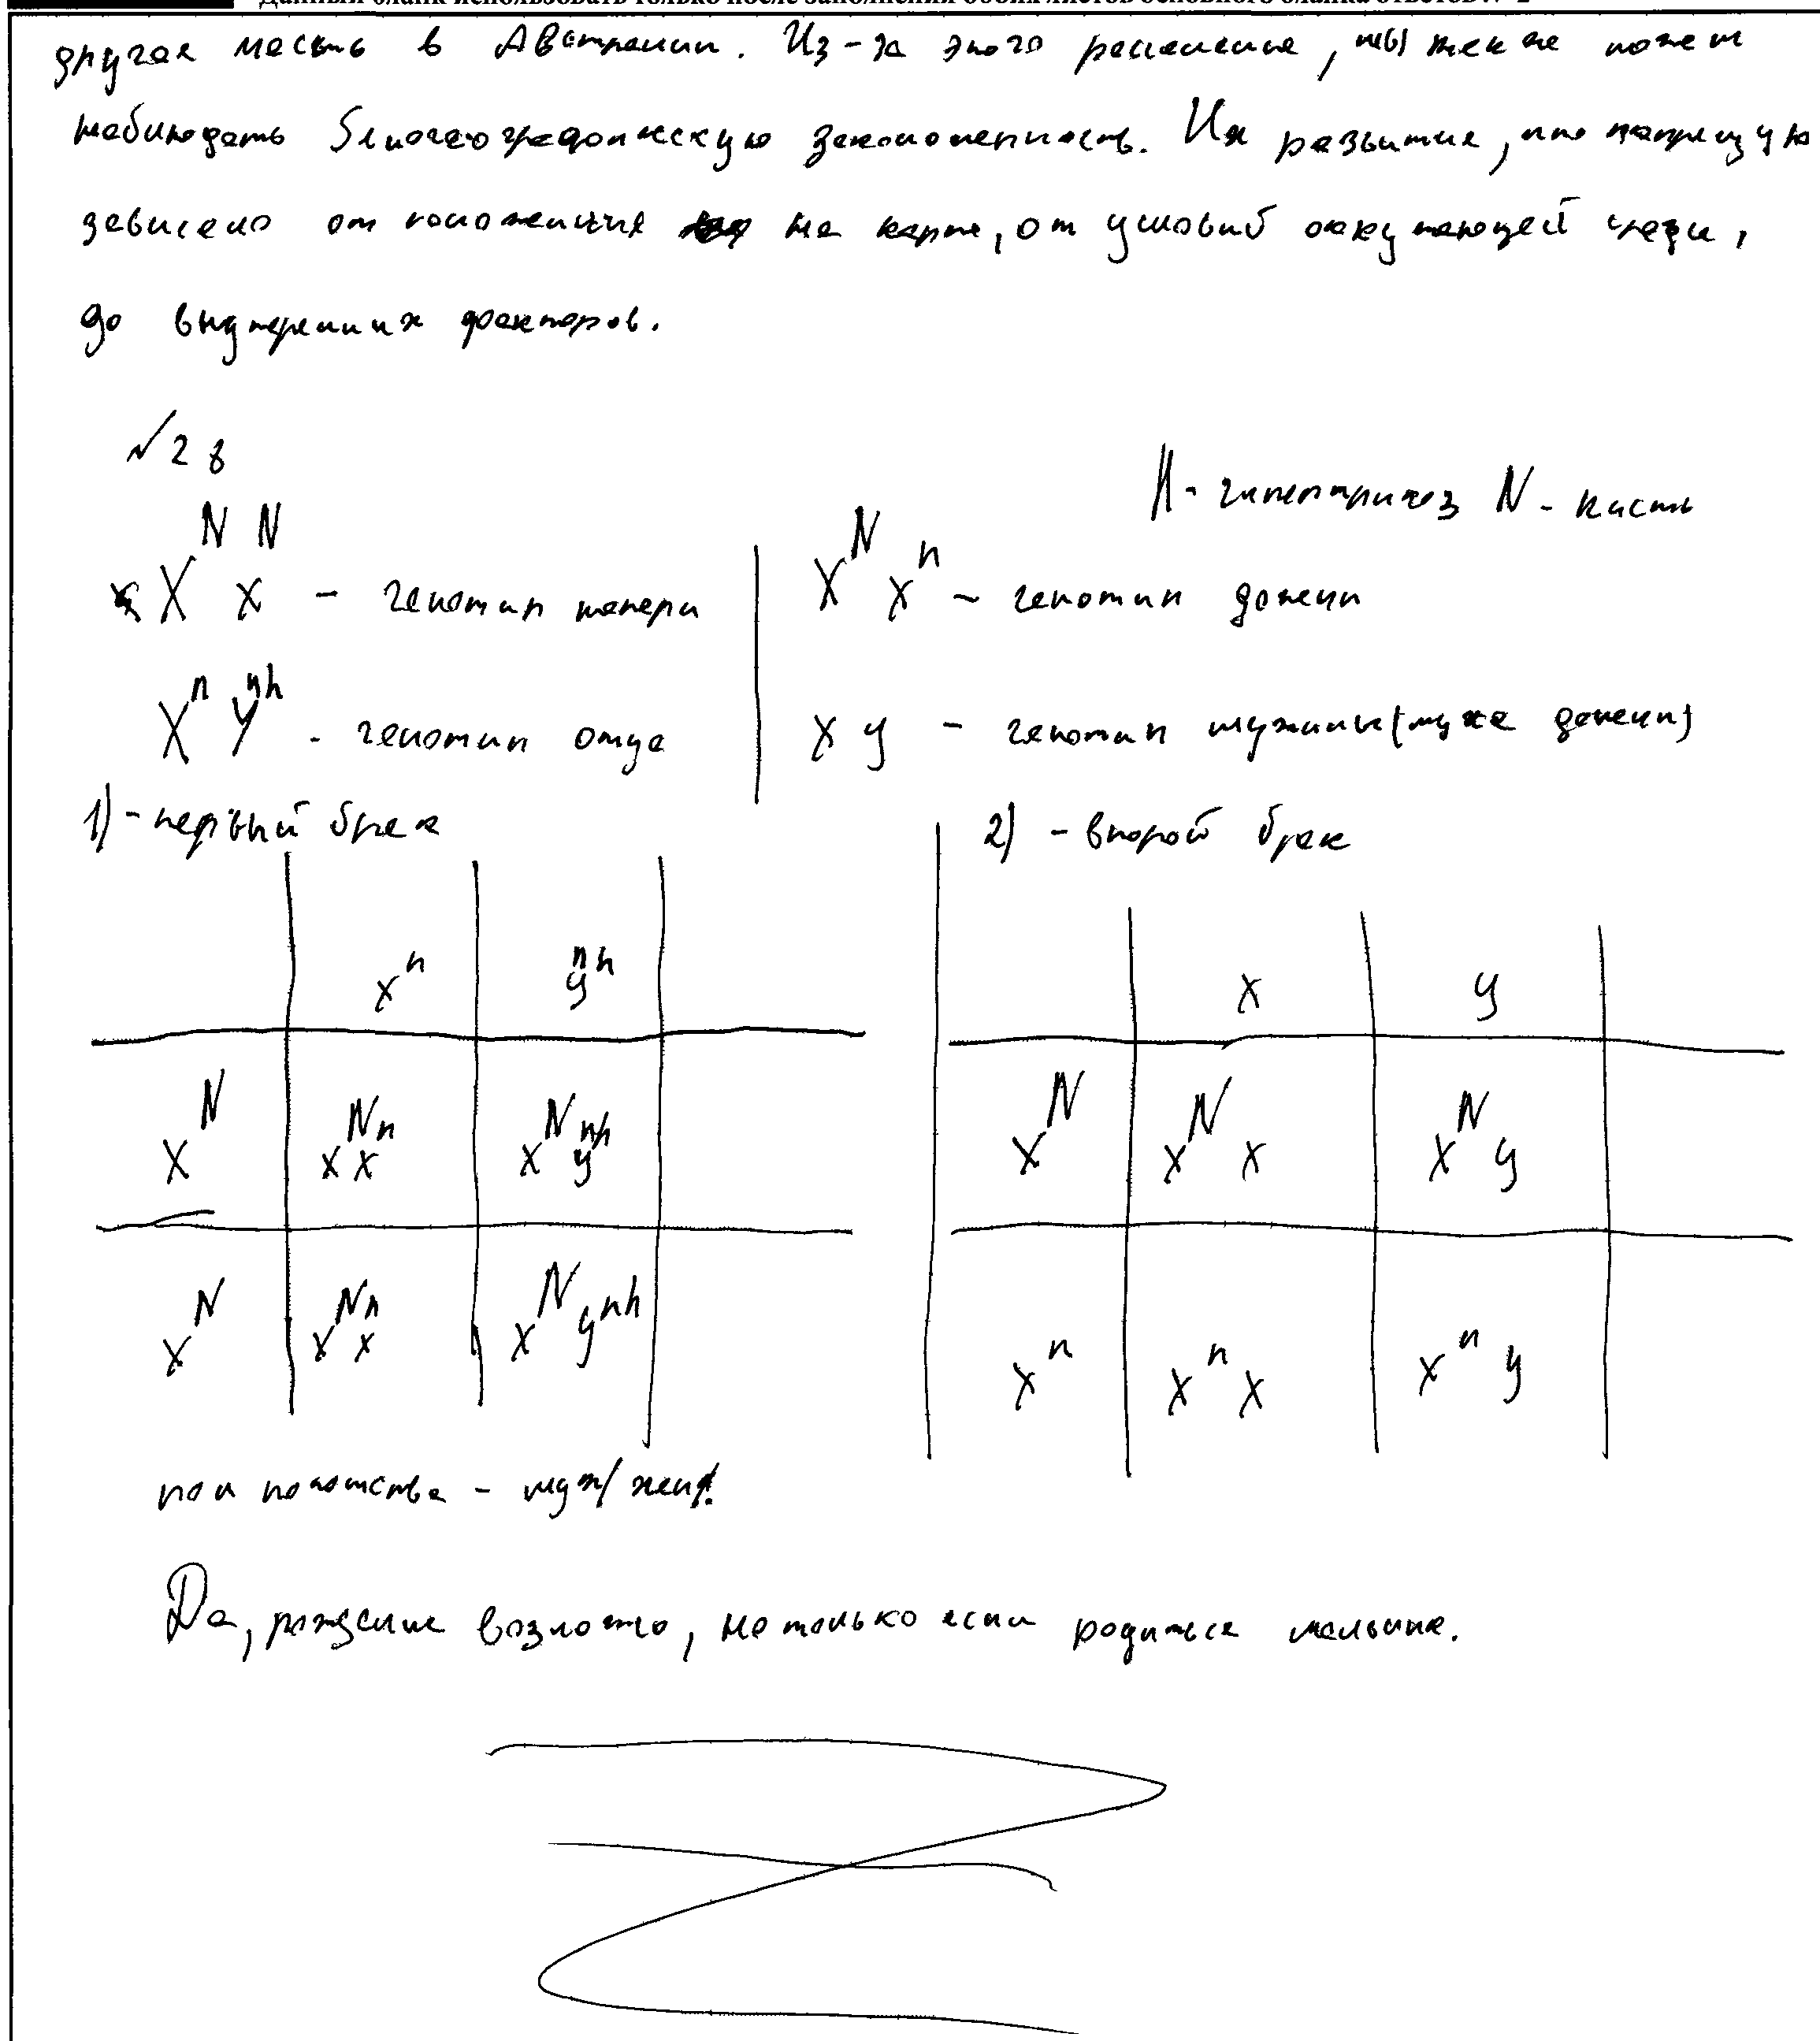 Данный бланк использовать только после заполнения обоих листов основного бланка ответов № 2
другая место в Австралии. Из-за этого расселение, мы также можем
наблюдать биогеографическую закономерность. Их развитие, что напрямую
зависело от положения на карте, от условий окружающей среды,
до внутренних факторов.
√28
H - гипертрихоз N - кисть
X^N x^N - генотип матери
X^N x^n - генотип дочери
X^n y^nh - генотип отца
x y - генотип мужчины (мужа дочери)
1) - первый брак
2) - второй брак
x^n y^nh
x y
x^N x^N x^n x^N y^nh
x^N x^N x x^N y
x^N x^N x^n x^N y^nh
x^n x^n x x^n y
пол потомства - муж/жен.
Да, рождение возможно, но только если родиться мальчик.